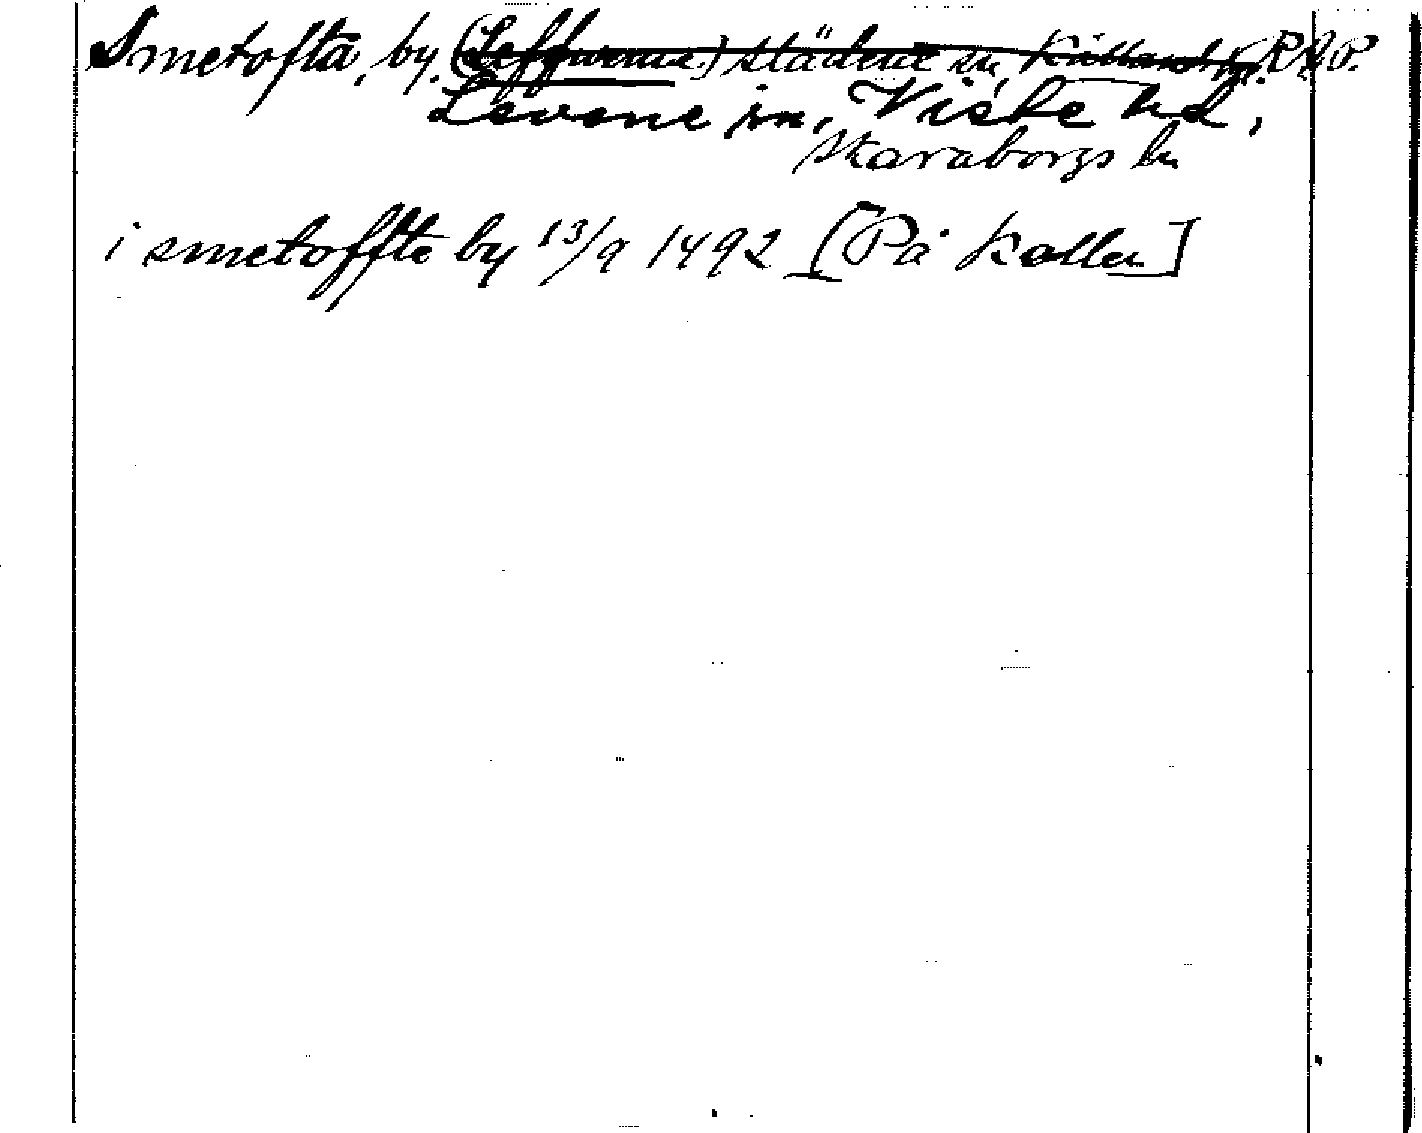 Smetofta, by. (Leffwenne) slädene sn, Kållands hd. R.A.P.
Levene sn, Viste hd,
Skaraborgs ln
i smetoffte by 13/9 1492 [På kollen]